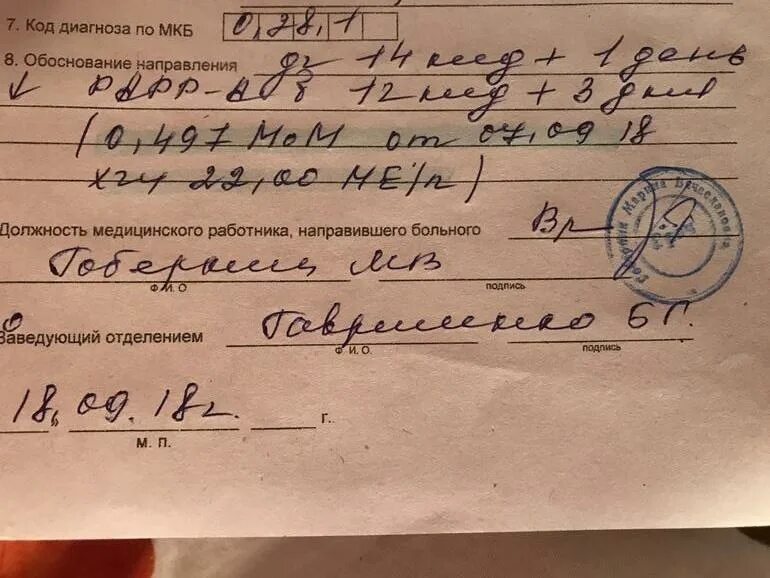 7. Код диагноза по МКБ 0,28,1
8. Обоснование направления дг 14 нед + 1 день
↓ PAPP-A в 12 нед + 3 дня
(0,497 МоМ от 07,09 18
ХГЧ 22,00 МЕ/л)
Должность медицинского работника, направившего больного Вр
МВ
Ф.И.О подпись
Заведующий отделением Гавриленко БГ.
Ф. И. О. подпись
18, 09. 18г. г.
М. П.
Марина Вячеславовна